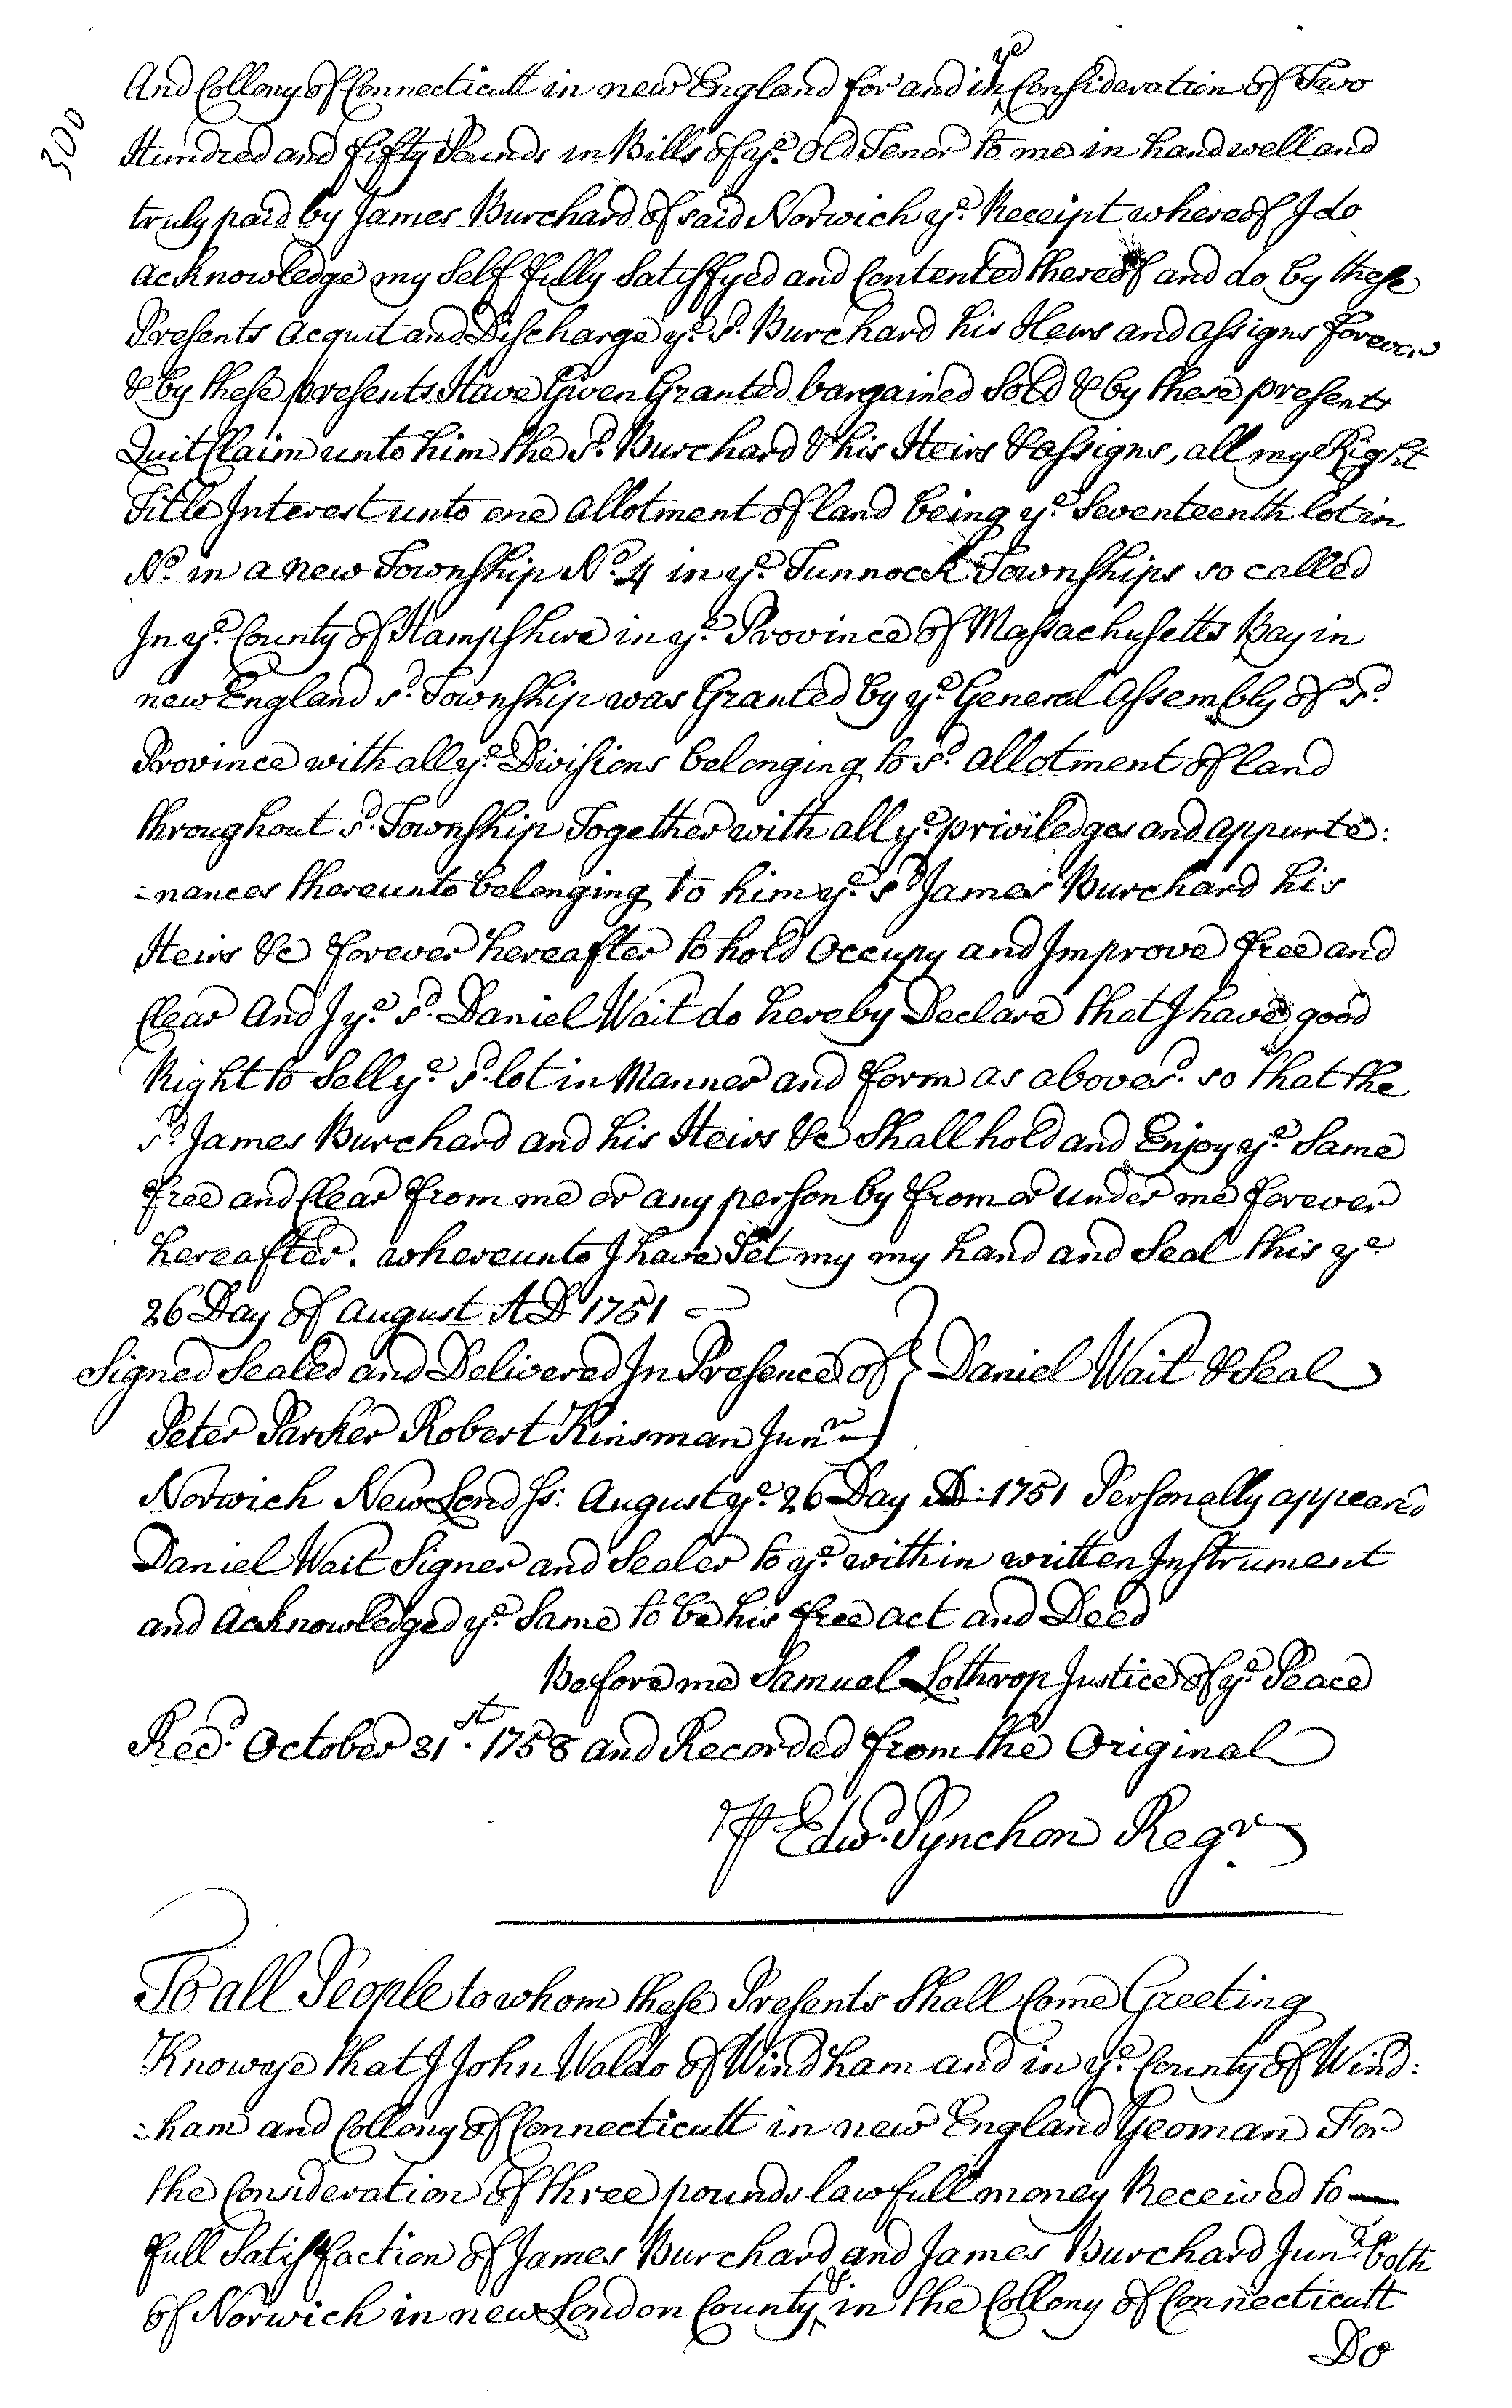 300
And Collony of Connecticutt in new England for and in ye Consideration of Two
Hundred and fifty Pounds in Bills of ye. Old Tenor to me in hand well and
truly paid by James Burchard of said Norwich ye. Receipt whereof I do
acknowledge my Self fully Satisfyed and Contented thereof and do by these
Presents acquit and Discharge ye. sd. Burchard his Heirs and assigns forever
& by these presents Have Given Granted bargained Sold & by these presents
Quit Claim unto him the sd. Burchard & his Heirs & assigns, all my Right
Title Interest unto one allotment of land being ye. Seventeenth lot in
No. in a new Township No. 4 in ye. Tunnock Townships so called
In ye. County of Hampshire in ye. Province of Massachusetts Bay in
new England sd. Township was Granted by ye. General Assembly of sd.
Province with all ye. Divisions belonging to sd. allotment of land
throughout sd. Township Together with all ye. priviledges and appurte:
=nances thereunto belonging to him ye. sd. James Burchard his
Heirs &c forever hereafter to hold Occupy and Improve free and
Clear And I ye. sd. Daniel Wait do hereby Declare that I have good
Right to Sell ye. sd. lot in Manner and form as abovesd. so that the
sd. James Burchard and his Heirs &c Shall hold and Enjoy ye. Same
free and Clear from me or any person by from or under me forever
hereafter. whereunto I have Set my my hand and Seal this ye
26 Day of August AD 1751
Signed Sealed and Delivered In Presence of } Daniel Wait & Seal
Peter Parker Robert Kinsman Junr
Norwich New Lond ss: August ye. 26 Day AD: 1751 Personally appeared
Daniel Wait Signer and Sealer to ye. within written Instrument
and Acknowledged ye. Same to be his free act and Deed
Before me Samuel Lothrop Justice of ye. Peace
Recd. October 31st. 1758 and Recorded from the Original
P Edwd. Pynchon Regr.
To all People to whom these Presents Shall Come Greeting
Know ye that I John Waldo of Windham and in ye. County of Wind:
=ham and Collony of Connecticutt in new England Yeoman For
the Consideration of three pounds lawfull money Received to
full Satisfaction of James Burchard and James Burchard Junr. both
of Norwich in new London County & in the Collony of Connecticutt
Do